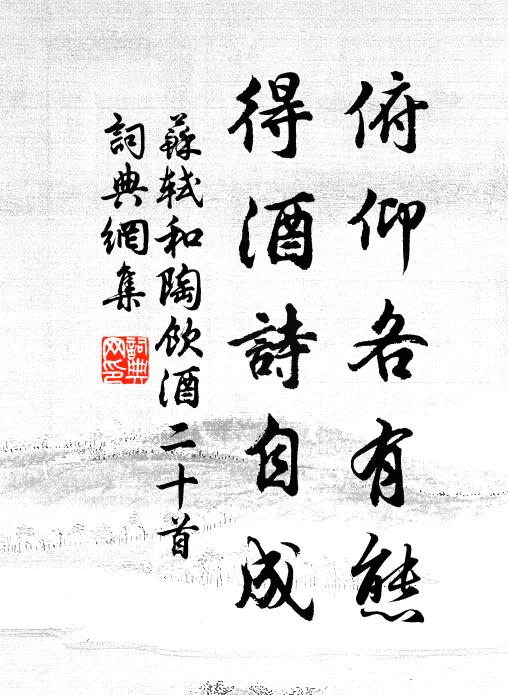 俯仰各有態
得酒詩自成
蘇軾和陶飲酒二十首
詞典網集
詞典
网印